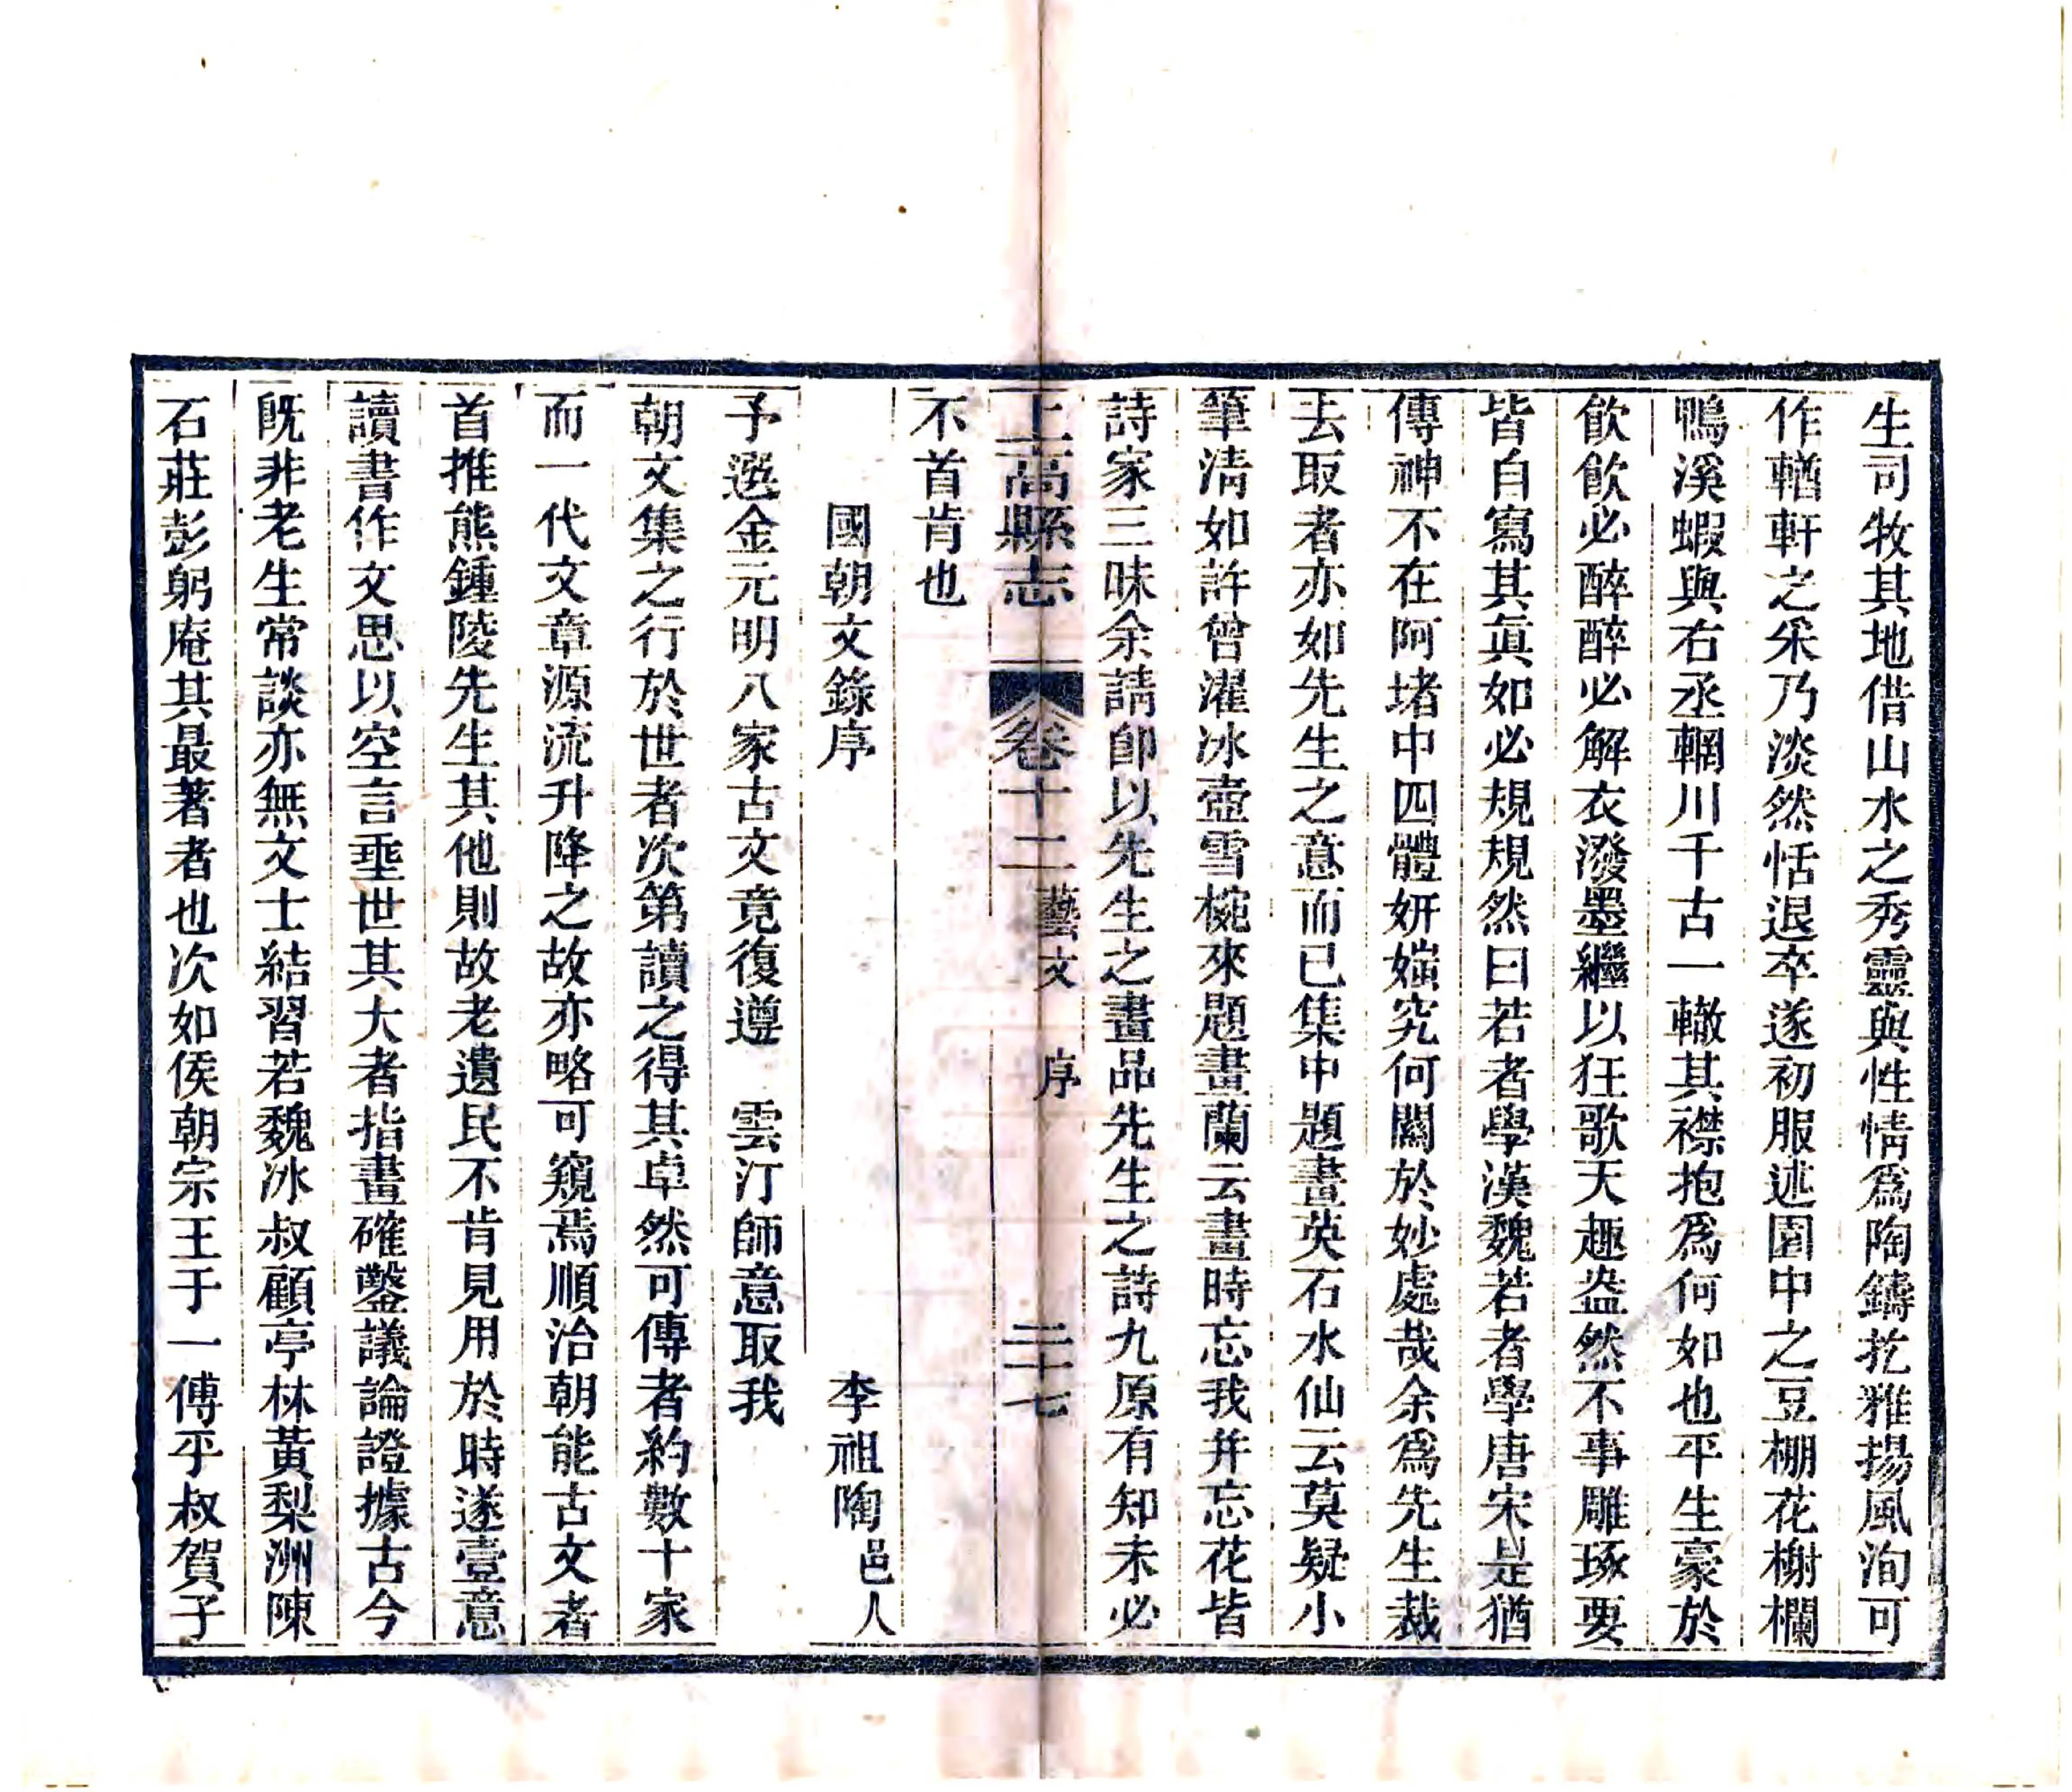 生司牧其地借山水之秀靈與性情爲陶鑄扢雅揚風洵可
作輶軒之采乃淡然恬退卒遂初服述園中之豆棚花榭欄
鴨溪蝦與右丞輞川千古一轍其襟抱爲何如也平生豪於
飮飮必醉醉必解衣潑墨繼以狂歌天趣盎然不事雕琢要
皆自寫其眞如必規規然曰若者學漢魏若者學唐宋是猶
傳神不在阿堵中四體姸媸究何關於妙處哉余爲先生裁
去取者亦如先生之意而已集中題畫英石水仙云莫疑小
筆淸如許曾濯冰壺雪椀來題畫蘭云畫時忘我幷忘花皆
詩家三昧余請卽以先生之畫品先生之詩九原有知未必
上高縣志 卷十二 藝文 序 二十七
不首肯也
國朝文錄序 李祖陶邑人
予選金元明八家古文竟復遵 雲汀師意取我
朝文集之行於世者次第讀之得其卓然可傳者約數十家
而一代文章源流升降之故亦略可窺焉順治朝能古文者
首推熊鍾陵先生其他則故老遺民不肯見用於時遂壹意
讀書作文思以空言垂世其大者指畫確鑿議論證據古今
旣非老生常談亦無文士結習若魏冰叔顧亭林黃梨洲陳
石莊彭躬庵其最著者也次如侯朝宗王于一傅平叔賀子